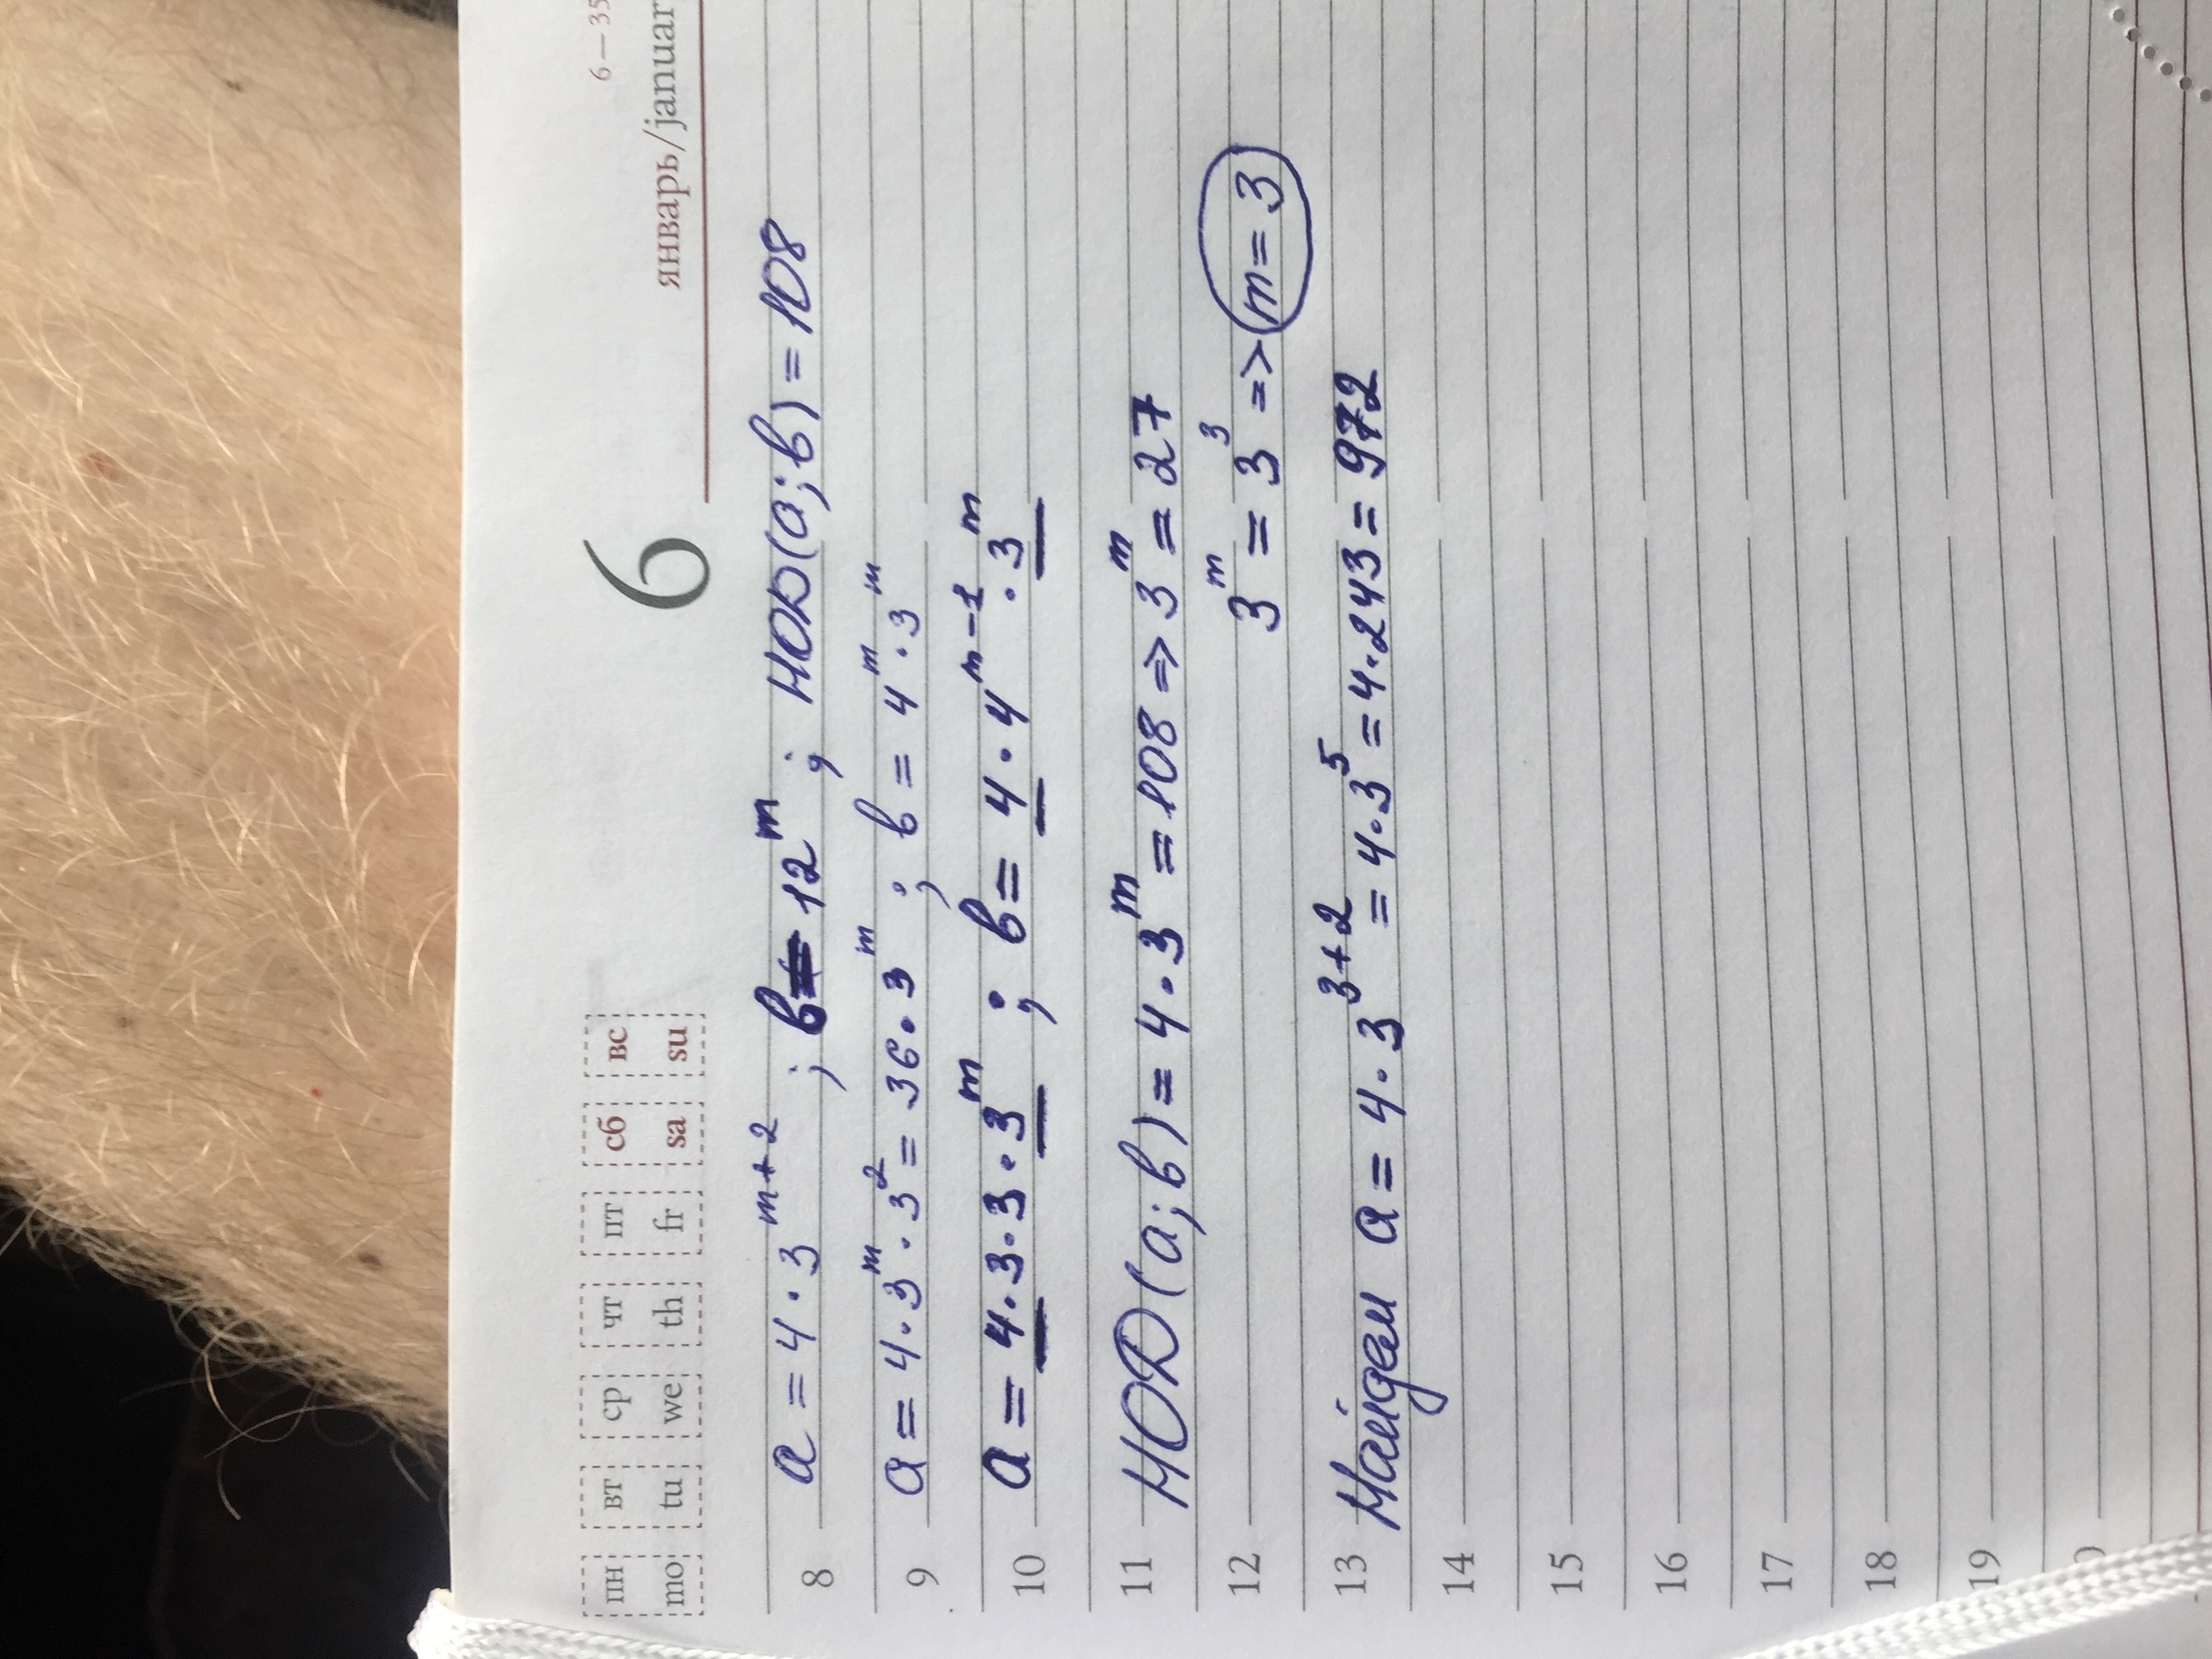 6
6—35
январь/januar
пн вт ср чт пт сб вс
mo tu we th fr sa su
8 a = 4 · 3^{m+2} ; b = 12^m ; НОД(a; b) = 108
9 a = 4 · 3^m · 3^2 = 36 · 3^m ; b = 4^m · 3^m
10 a = 4 · 3 · 3 · 3^m ; b = 4 · 4^{m-1} · 3^m
11 НОД(a; b) = 4 · 3^m = 108 => 3^m = 27
12 3^m = 3^3 => m = 3
13 Найдем a = 4 · 3^{3+2} = 4 · 3^5 = 4 · 243 = 972
14
15
16
17
18
19